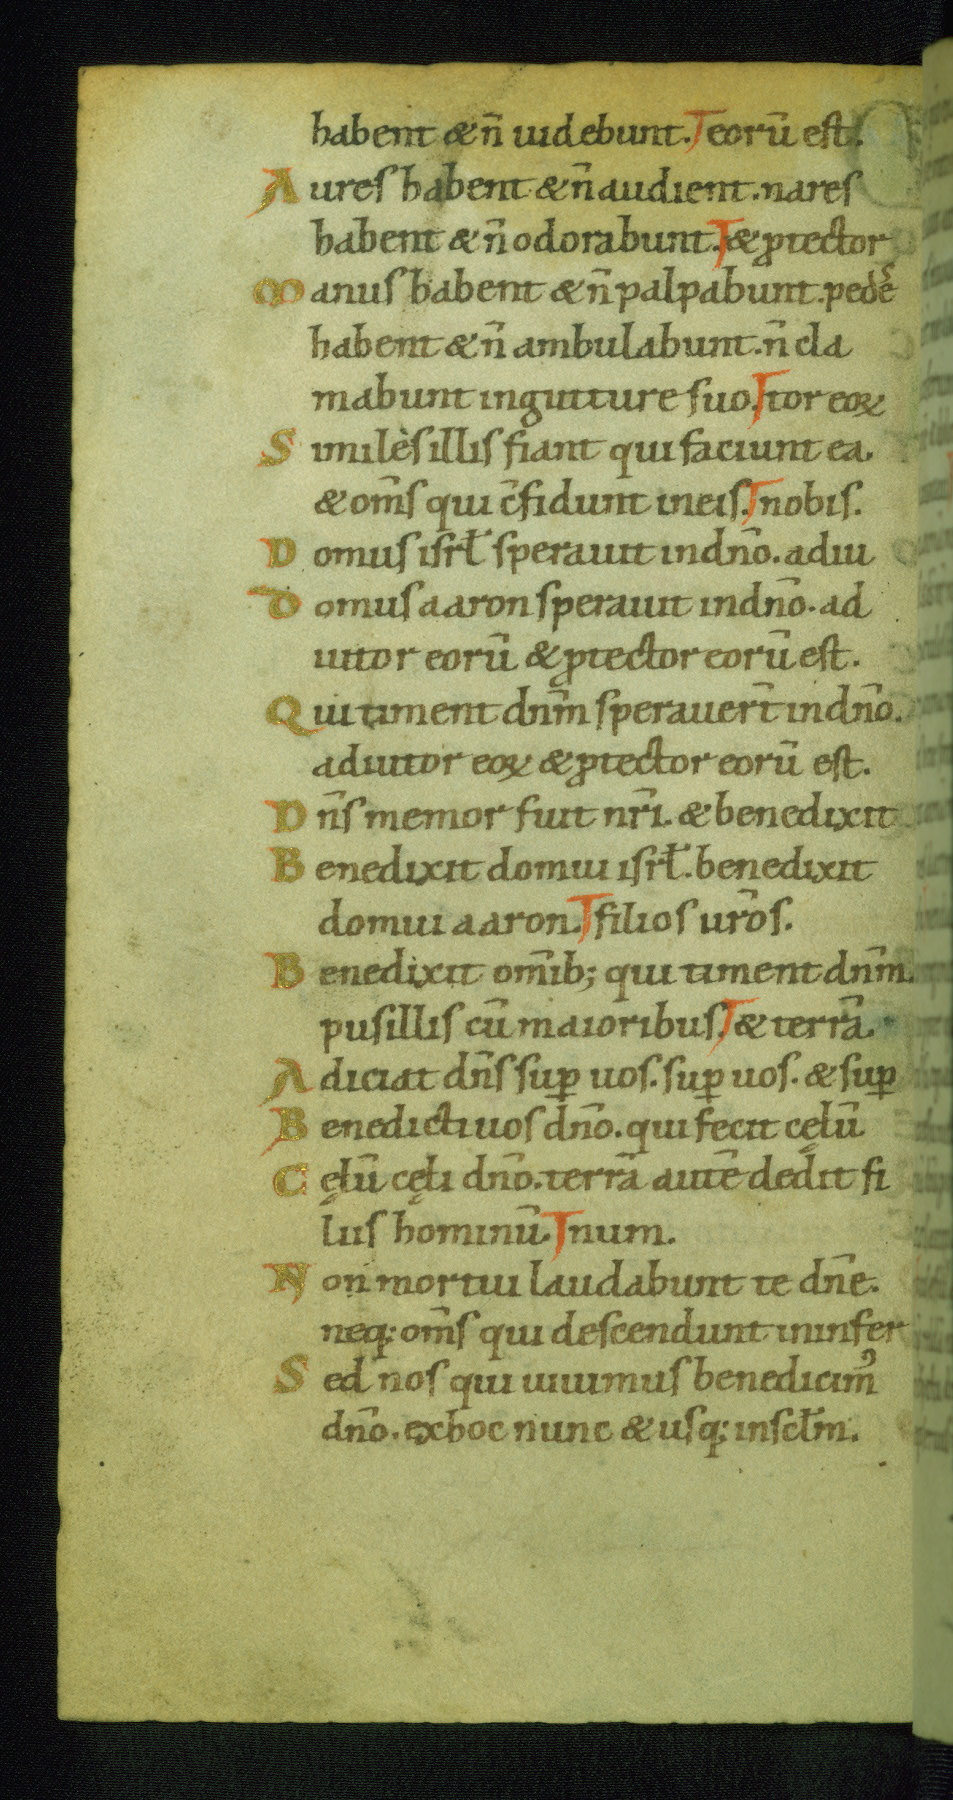 habent & n̄ uidebunt. eorū est.
Aures habent & n̄ audient. nares
habent & n̄ odorabunt. & ꝓtector
Manus habent & n̄ palpabunt. pedes
habent & n̄ ambulabunt. n̄ cla
mabunt ingutture suo. tor eoꝝ
Similes illis fiant qui faciunt ea.
& om̄s qui c̄fidunt ineis. nobis.
Domus isrł sperauit indn̄o. adiu
Domus aaron sperauit indn̄o. ad
iutor eorū & ꝓtector eorū est.
Qui timent dn̄m sperauer̄t indn̄o.
adiutor eoꝝ & ꝓtector eorū est.
Dn̄s memor fuit nr̄i. & benedixit
Benedixit domui isrł. benedixit
domui aaron. filios ur̄os.
Benedixit om̄ib; qui timent dn̄m.
pusillis cū maioribus. & terrā.
Adiciat dn̄s suꝑ uos. suꝑ uos. & suꝑ
Benedicti uos dn̄o. qui fecit cęlū
Cęlū cęli dn̄o. terrā autē dedit fi
liis hominū. num.
Non mortui laudabunt te dn̄e.
neq; om̄s qui descendunt ininfer
Sed nos qui uiuimus benedicimꝰ
dn̄o. exhoc nunc & usq; inscl̄m.